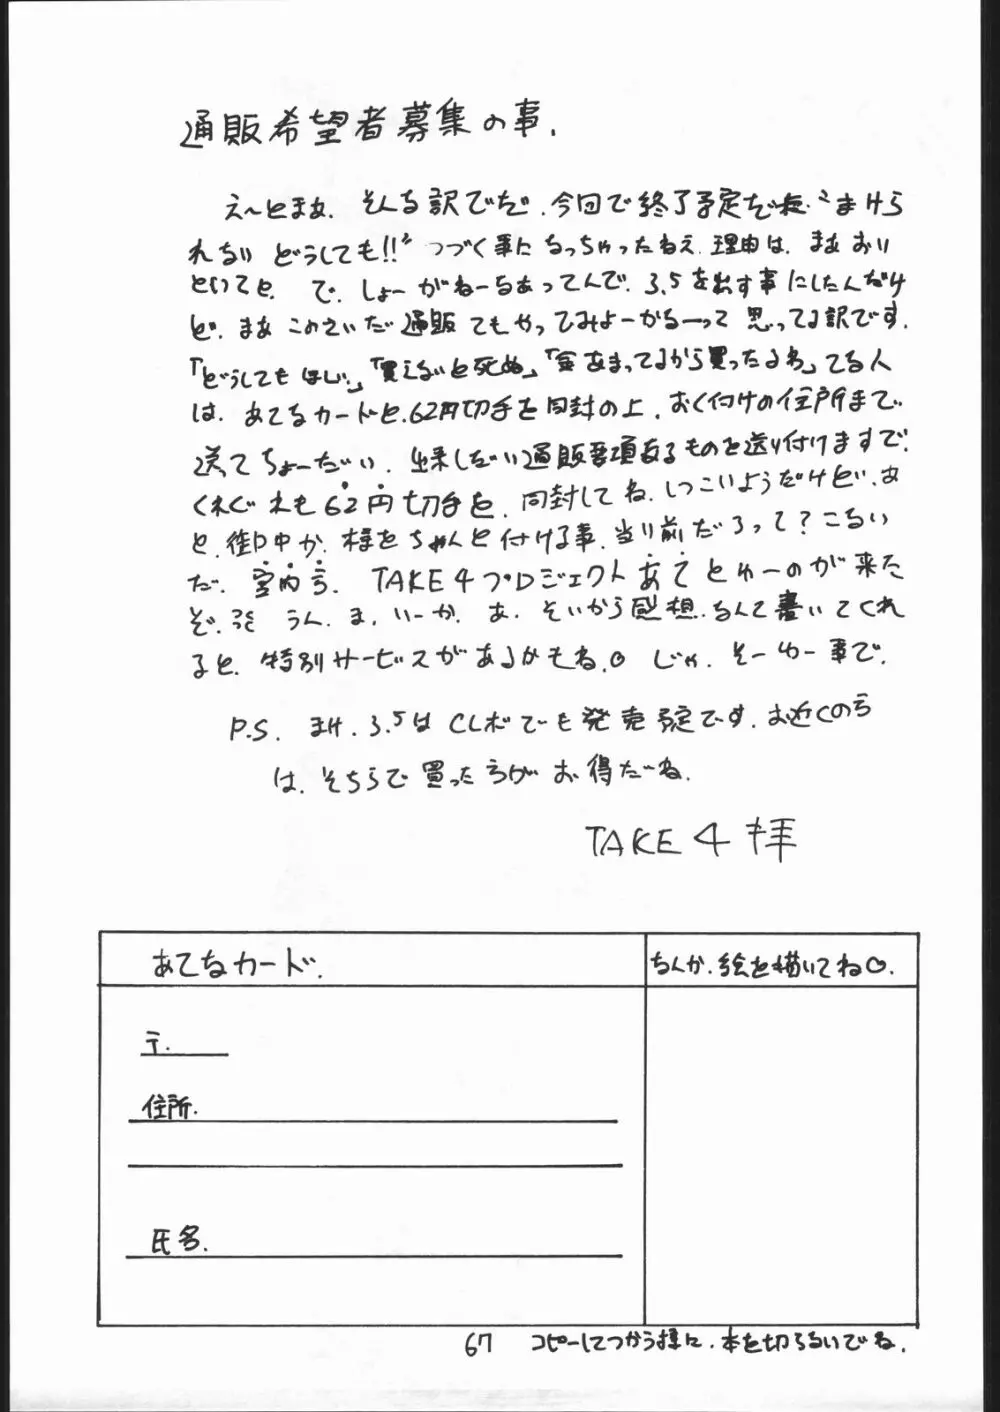 通販希望者募集の事.
え〜とまぁ. そんな訳でだ. 今回で終了予定だった“まけら
れない どうしても!!” つづく事になっちゃったねえ. 理由は. まあ おい
といてと. で. しょーがねーなあってんで. 3.5を出す事にしたんだけ
ど. まあ このさいだ 通販でもやってみよーかなーって 思ってる訳です.
「どうしてもほしい」「買えないと死ぬ」「金あまってるから買ったるわ」てな人
は. あてなカードと. 62円切手を同封の上. おく付けの住所まで
送ってちょーだい. 出来しだい通販要項なるものを送り付けますで.
くれぐれも62円切手を. 同封してね. しつこいようだけどい. あ
と. 御中か. 様をちゃんと付ける事. 当り前だろって? こない
だ. 宮内
TAKE4プロジェクトあてとゆーのが来た
ぞ. うん. ま. いーか. あ. そいから感想. なんて書いてくれ
ると. 特別サービスがあるかもね.○ じゃ. そーゆー事で.
P.S. まけ. 3.5はCLボでも発売予定です. お近くのち
は. そちらで買ったちがお得だね.
TAKE 4 拝
あてなカード.
なんか. 絵を描いてね○.
〒.
住所.
氏名.
67 コピーしてつかう様に. 本を切らないでね.